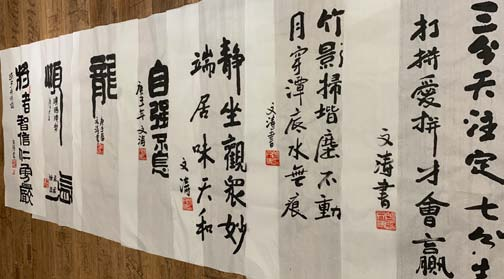 三分天注定七分
打拼愛拼才會贏
文濤書
竹影掃堦塵不動
月穿潭底水無痕
文濤書
静坐觀衆妙
端居味天和
文濤
自强不息
庚子年文濤
龍
文濤書
順
將者智信仁勇嚴